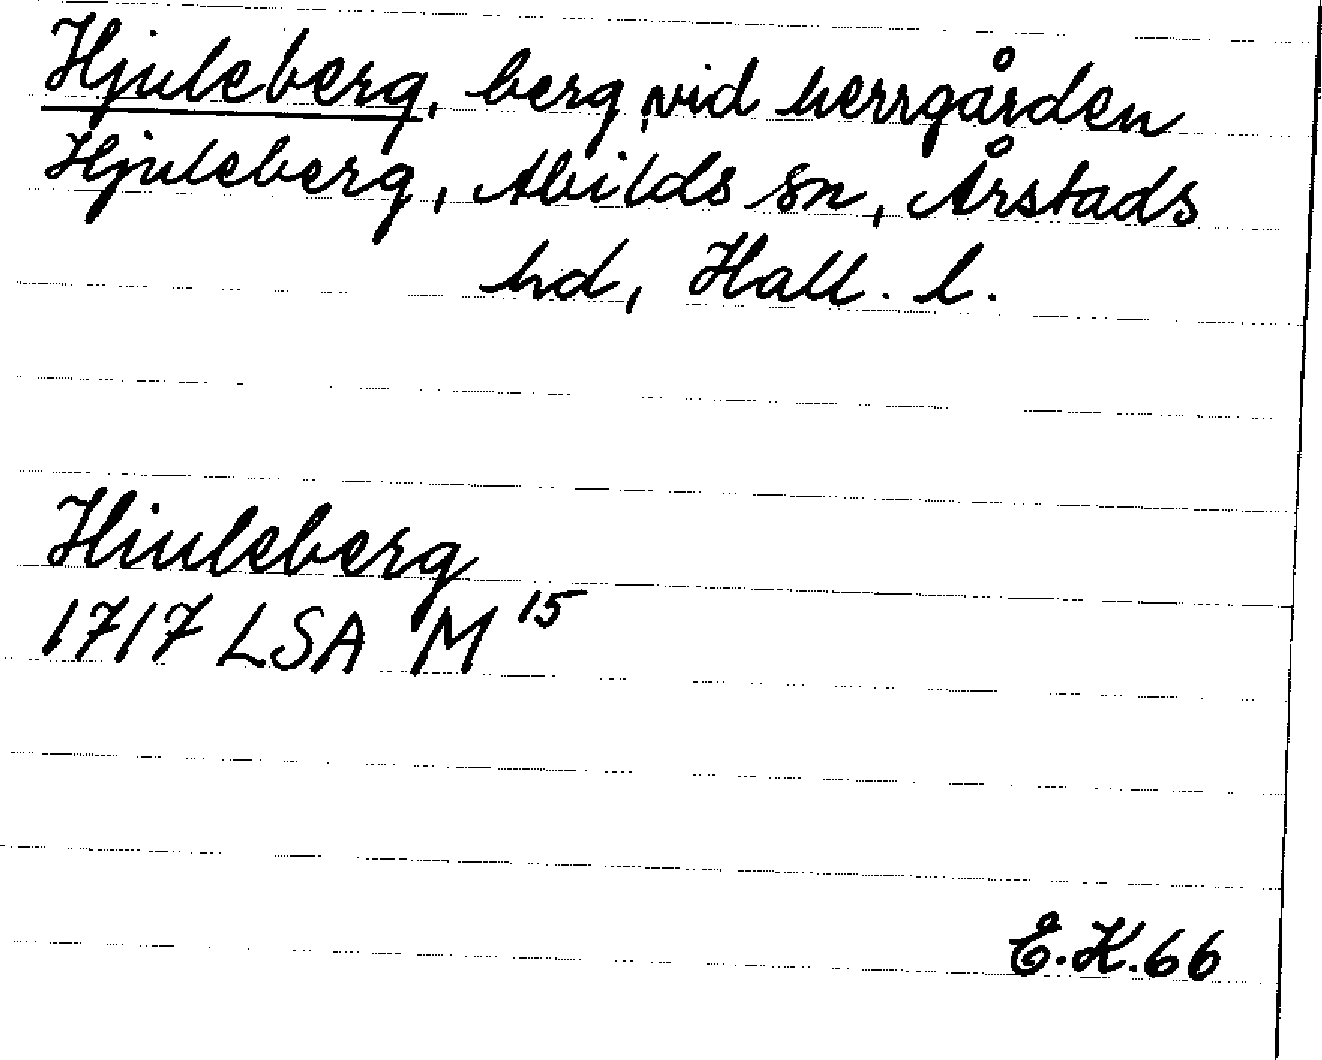 Hjuleberg, berg vid herrgården
Hjuleberg, Abilds sn, Årstads
hd, Hall. l.
Hiuleberg
1717 LSA M 15
E.K.66